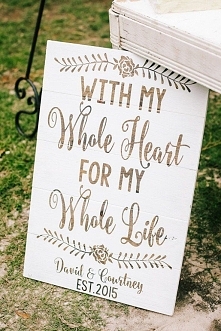 WITH MY
Whole Heart
FOR MY
Whole Life
David & Courtney
EST. 2015